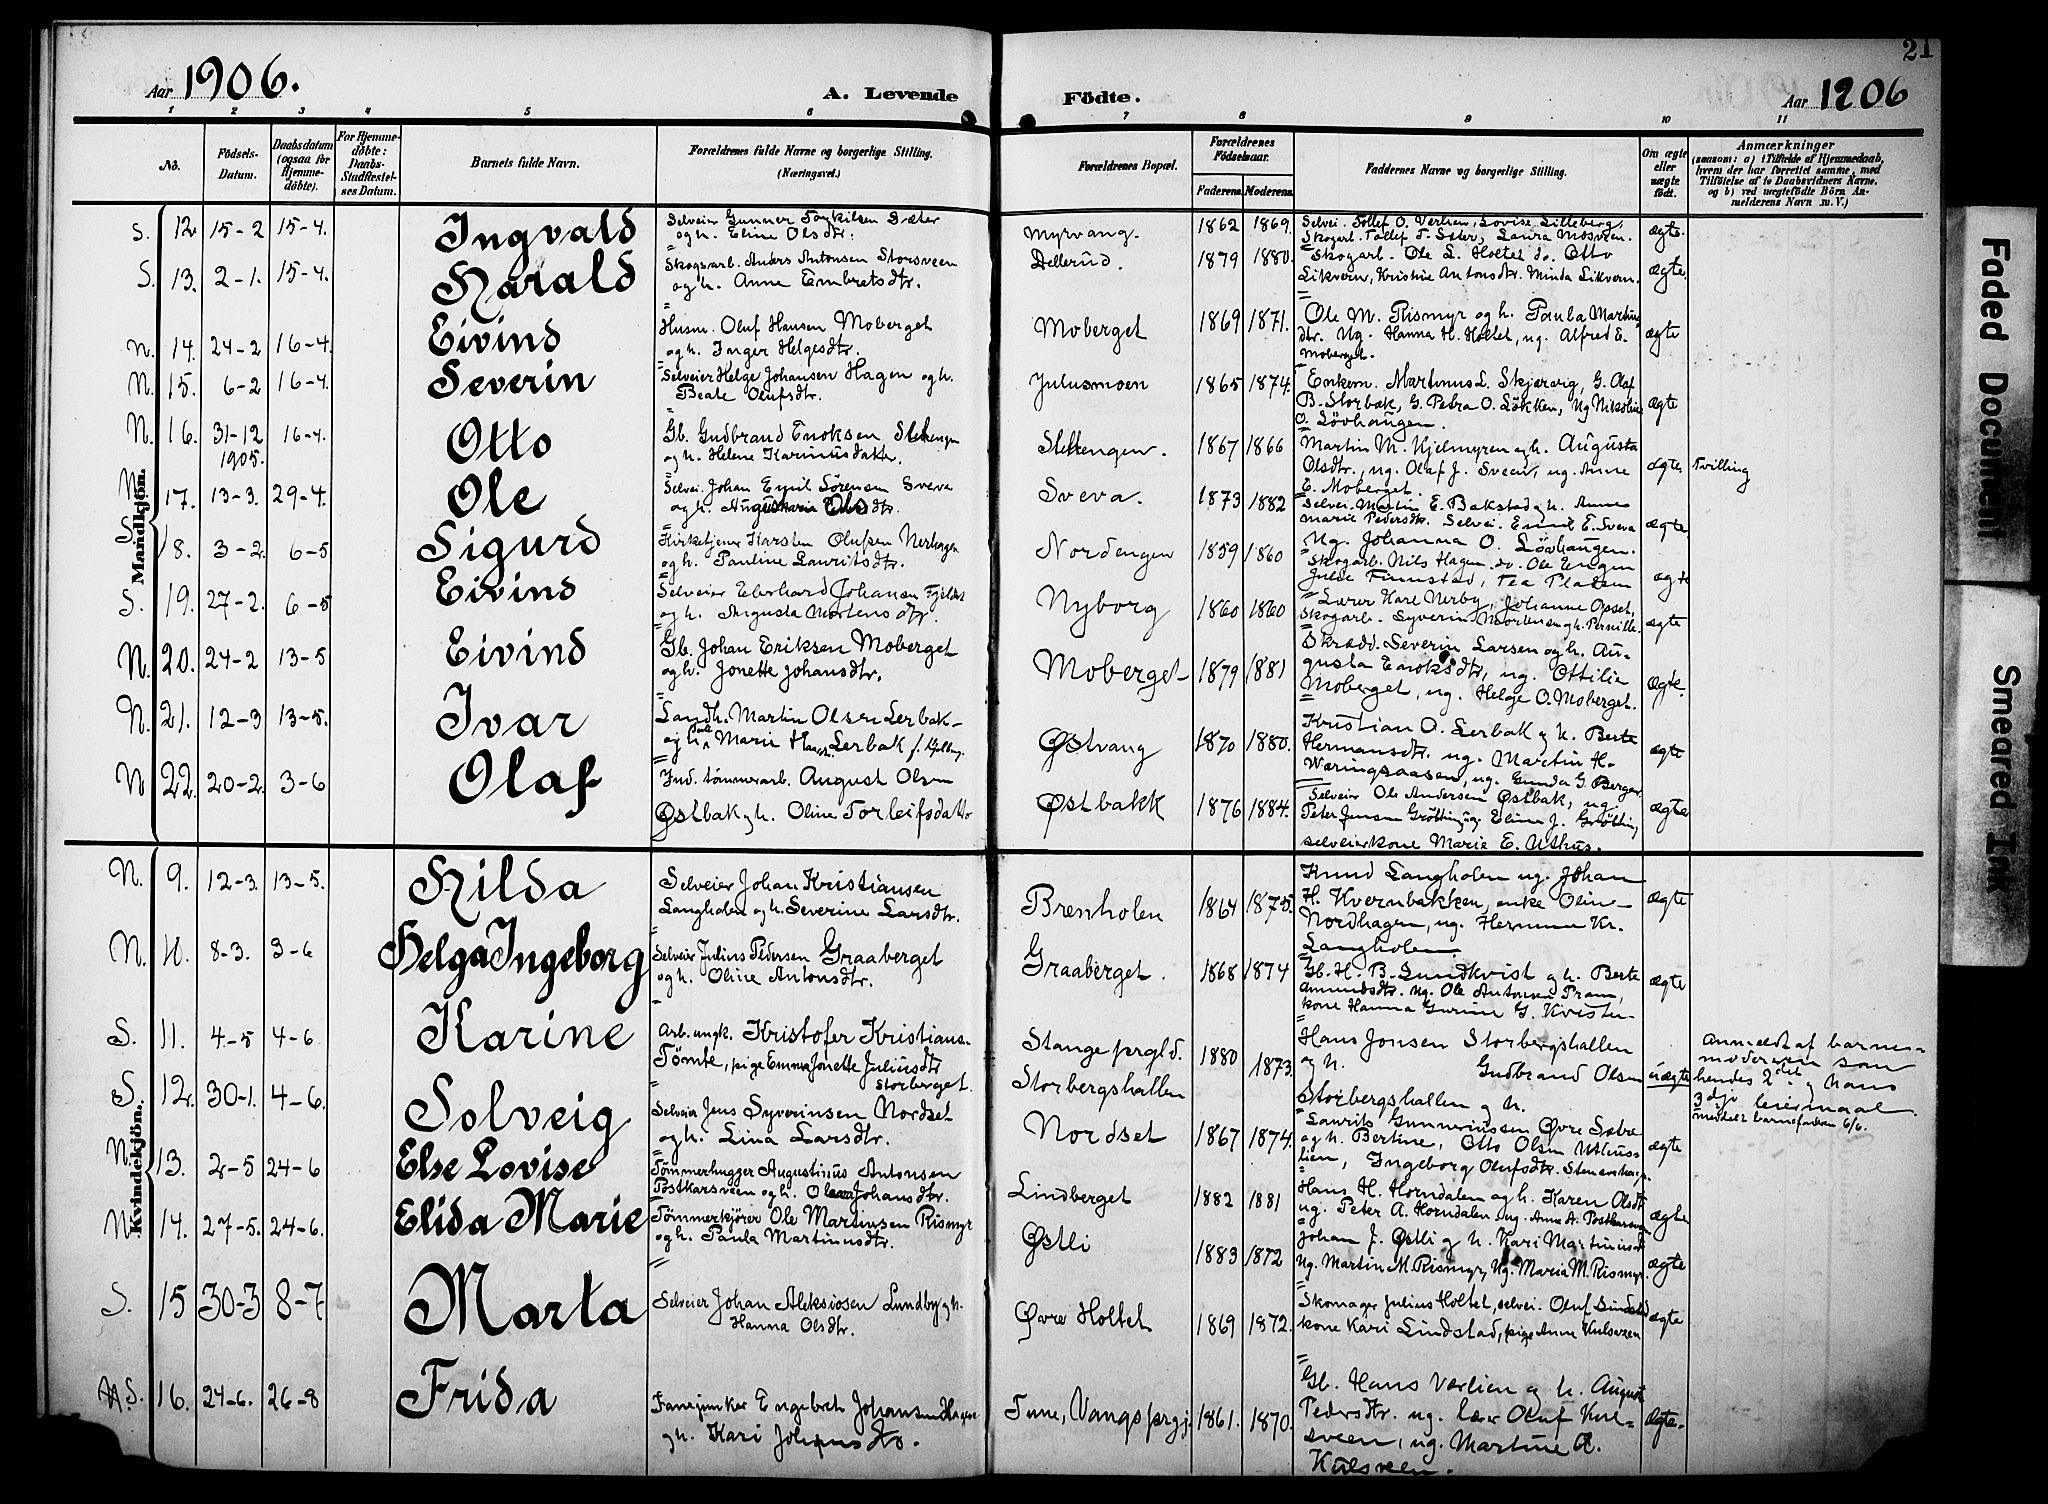 21
Aar 1906.
A. Levende
Födte.
Aar 1906
1 2 3 4 5 6 7 8 9 10 11
No.
Födsels-Datum.
Daabsdatum (ogsaa for Hjemmedöbte).
For Hjemmedöbte: Daabs-Stadfæstelses Datum.
Barnets fulde Navn.
Forældrenes fulde Navne og borgerlige Stilling. (Næringsvei.)
Forældrenes Bopæl.
Forældrenes Födselsaar.
Faderens. Moderens.
Faddernes Navne og borgerlige Stilling.
Om ægte eller uægte födt.
Anmærkninger
(saasom: a) i Tilfælde af Hjemmedaab, hvem der har forrettet samme, med Tilföielse af to Daabsvidners Navne, og b) ved uægtefödte Börn Anmelderens Navn m. V.)
Mandkjön.
S. 12. 15-2 15-4. Ingvald Selveier Gunner Torkilsen Sæter
og h. Eline Olsdtr. Myrvang. 1862 1869. Selvei. Tollef O. Værlien, Lovise Lilleberg,
Skogarb. Tollef T. Sæter, Laura Mosveen. ægte.
S. 13. 2-1. 15-4. Harald Skogsarb. Anders Antonsen Storsveen
og h. Anne Embretsdtr. Dellerud. 1879 1880. Skogarb. Ole L. Holtet do. Otto
Likvern, Kristine Antonsdtr. Minda Likvern. ægte.
N. 14. 24-2 16-4. Eivind Husm. Oluf Hansen Moberget
og h. Inger Helgesdtr. Moberget 1869 1871. Ole M. Rismyr og h. Paula Martins
dtr. Ug. Hanna H. Holtet, ug. Alfred E.
Moberget. ægte
N. 15. 6-2 16-4. Severin Selveier Helge Johansen Hagen og h.
Beate Olufsdtr. Julusmoen 1865 1874. Enkem. Martinus L. Skjærvig, G. Olaf
B. Storbæk, G. Petra O. Løkken, Ug Nikoline
O. Løvhaugen. ægte
N. 16. 31-12 1905. 16-4. Otto Gb. Gudbrand Enoksen Slettengen
og h. Helene Karinusdatr. Slettengen. 1867 1866 Martin M. Kjelmyren og h. Augusta
Olsdtr., ug. Olaf J. Sveen, ug. Anne
E. Moberget. ægte Tvilling
N. 17. 13-3. 29-4. Ole Selvei. Johan Emil Sørensen Sveva
og h. Olsdtr. Sveva. 1873 1882 Selvei. Martin E. Bakstad og h. Anne
Marie Pedersdtr. Selvei. Emil E. Sveva
Ug. Johanna O. Løvhaugen. ægte
S. 18. 3-2. 6-5 Sigurd Kirketjener Karsten Olufsen Nerhagen
og h. Pauline Lauritsdtr. Nordengen 1859 1860 Skogarb. Nils Hagen do. Ole Engen
Julie Finnstad, Tea Pladsen ægte
S. 19. 27-2. 6-5 Eivind Selveier Eberhard Johansen
og h. Augusta Mortensdtr. Nyborg 1860 1860 Lærer Karl Nerby, Johanne Opset,
Skogarb. Syverin Mortensen og h. Pernille. ægte
N. 20. 24-2 13-5 Eivind Gb. Johan Eriksen Moberget
og h. Jonette Johansdtr. Moberget 1879 1881 Skrædd. Severin Larsen og h. Au-
gusta Enoksdtr, ug. Ottilie
Moberget, ug. Helge O. Moberget. ægte.
N. 21. 12-3 13-5. Ivar Landh. Martin Olsen Lerbak
og h. Marie Lerbak f. Østvang 1870 1880. Kristian O. Lerbak og h. Berte
Hermansdtr. ug. Martin H.
Wæringsaasen, ug. Gunda G. Berger ægte
N 22. 20-2. 3-6 Olaf Ind. tømmerarb. August Olsen
Østbak og h. Oline Torleifsdatter Østbakk 1876 1884. Selveier Ole Andersen Østbak, ug.
Peter Jensen Grøtting, ug. Eline J. Grøtting,
selveierkone Marie E. Uthus. ægte
Kvindekjön.
N. 9. 12-3. 13-5. Hilda Selveier Johan Kristiansen
Langholen og h. Severine Larsdtr. Brenholen 1864 1875. Knud Langholen ug. Johan
H. Kvernbakken, enke Olin-
Nordhagen, ug. Hermine Kr.
Langholen. ægte
N. 10. 8-3. 3-6 Helga Ingeborg Selveier Julius Pedersen Graaberget
og h. Oline Antonsdtr. Graaberget. 1868 1874 Gb. H. B. Lundkvist og h. Berte
Amundsdtr. ug. Ole Antonsen Pram,
kone Hanna Gurine G. ægte
S. 11. 4-5 4-6 Karine Arb. ungk. Kristofer Kristians.
Tømte, pige Emma Jonette Juliusdtr
Storberget. Stange prgld.
Storbergshallen 1880 1873. Hans Jonsen Storbergshallen
og h. Gudbrand Olsen
Storbergshallen og h. uægte Anmeldt af barnes-
moderen som
hendes 2det og hans
3dje leiermaal.
meddelt barnefaderen 6/6.
S. 12. 30-1. 4-6. Solveig Selveier Jens Syverinsen Nordset
og h. Lina Larsdtr. Nordset 1867 1874. Laurits Gunneriussen Øvre Sætre
og h. Bertine, Otto Olsen Uthus-
lien, Ingeborg Olufsdtr. ægte
N. 13. 2-5 24-6 Else Lovise Tømmerhugger Augustinus Antonsen
Postkarsveen og h. Johansdtr. Lindberget 1882 1881 Hans H. Horndalen og h. Karen Olsdt
ug. Peter A. Horndalen, ug. Anne A. Postkarsveen ægte
N 14. 27-5. 24-6. Elida Marie Tømmerkjører Ole Martinsen Rismyr
og h. Paula Martinusdtr. Østli 1883 1872 Johan J. Østli og h. Kari Martinusd
Ug. Martin M. Rismyr, Ug. Maria M. Rismyr. ægte
S. 15 30-3 8-7 Marta Selveier Johan Aleksiosen Lundby og h.
Hanna Olsdtr. Øvre Holtet 1869 1872. Skomager Julius Holtet, selvei. Oluf Lindstad
kone Kari Lindstad, pige Anne Kulsveen ægte
S. 16. 24-6. 26-8 Frida Fanejunker Engebret Johansen
og h. Kari Johansdtr. Tune, Vangs prgj. 1861. 1870. Gb. Hans Værlien og h. August
Pedersdtr. ug. lærer Oluf Kul-
sveen, ug. Martine A.
Kulsveen. ægte.
Faded Document
Smeared Ink